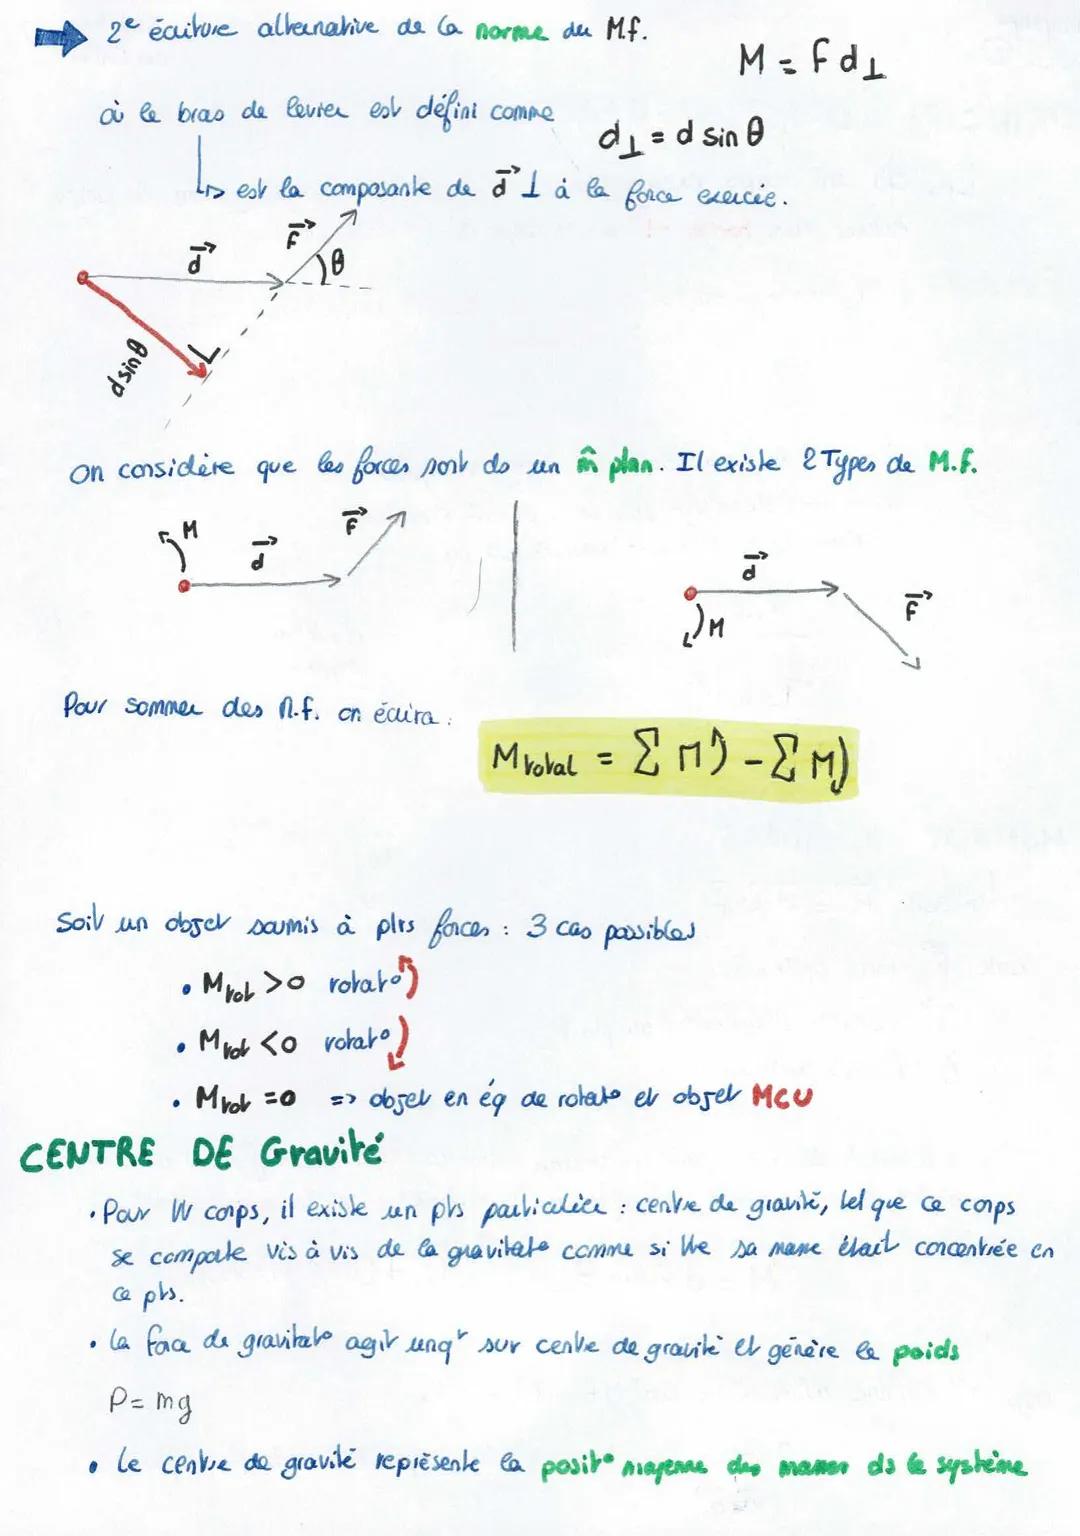 2e écriture alternative de la norme du M.f.
M = F d⊥
où le bras de levier est défini comme
d⊥ = d sin θ
↳ est la composante de d⃗ ⊥ à la force exercée.
d⃗ F⃗ θ
d sin θ
On considère que les forces sont ds un m̂ plan. Il existe 2 Types de M.F.
M d⃗ F⃗
d⃗ M F⃗
Pour sommer des M.f. on écrira :
Mtotal = Σ M↺ - Σ M↻
Soit un objet soumis à plrs forces : 3 cas possibles
• Mtot >0 rotat° ↺
• Mtot <0 rotat° ↻
• Mtot =0 => objet en éq de rotat° et objet MCU
CENTRE DE Gravité
• Pour W corps, il existe un pts particulière : centre de gravité, tel que ce corps
se comporte vis à vis de la gravitat° comme si tte sa masse était concentrée en
ce pts.
• La force de gravitat° agit unqt sur centre de gravité et génère le poids
P = mg
• Le centre de gravité représente la posit° moyenne des masses ds le système